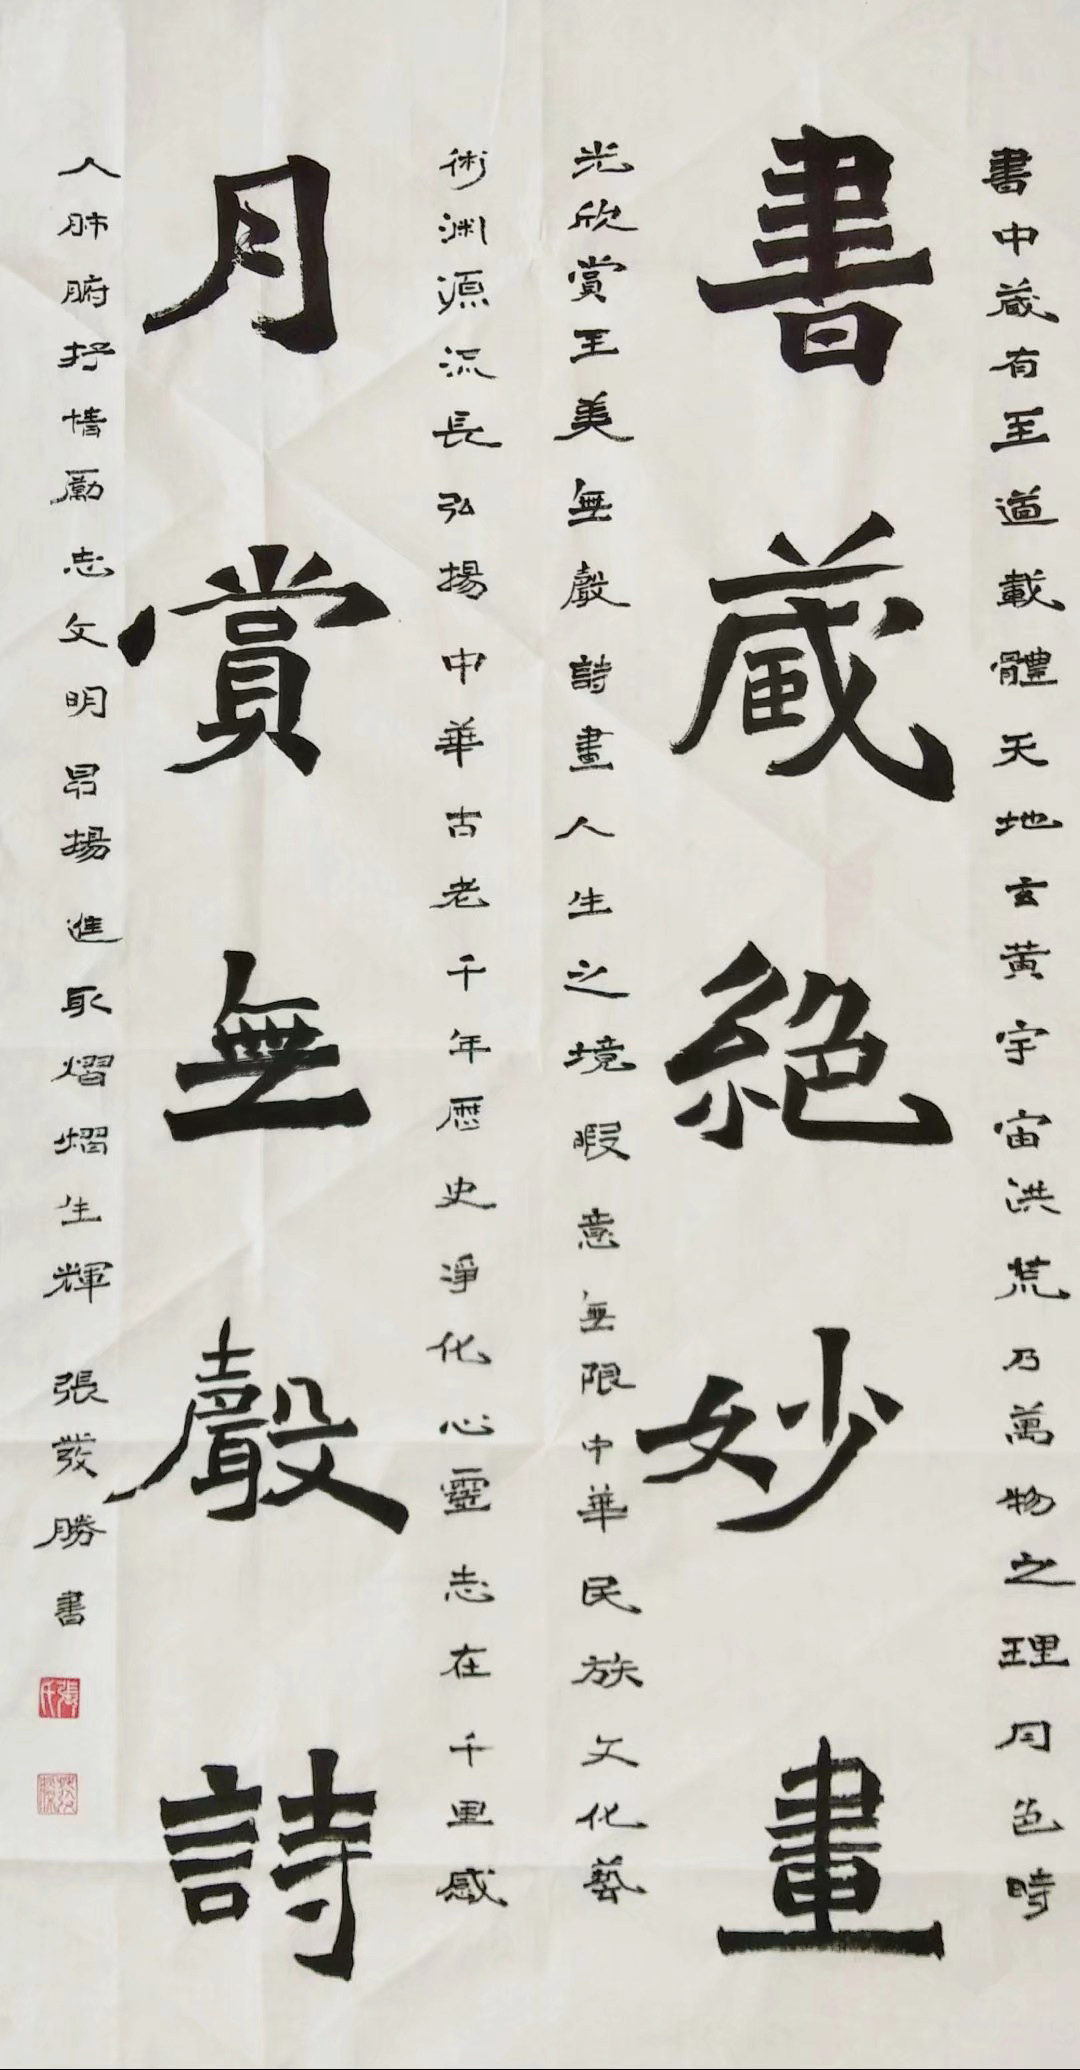 書中藏有至道載體天地玄黃宇宙洪荒乃萬物之理月色時
書藏絕妙畫
光欣賞至美無聲詩畫人生之境暇意無限中華民族文化藝
術淵源流長弘揚中華古老千年歷史淨化心靈志在千里感
月賞無聲詩
人肺腑抒情勵志文明昂揚進取熠熠生輝 張發勝書
張氏